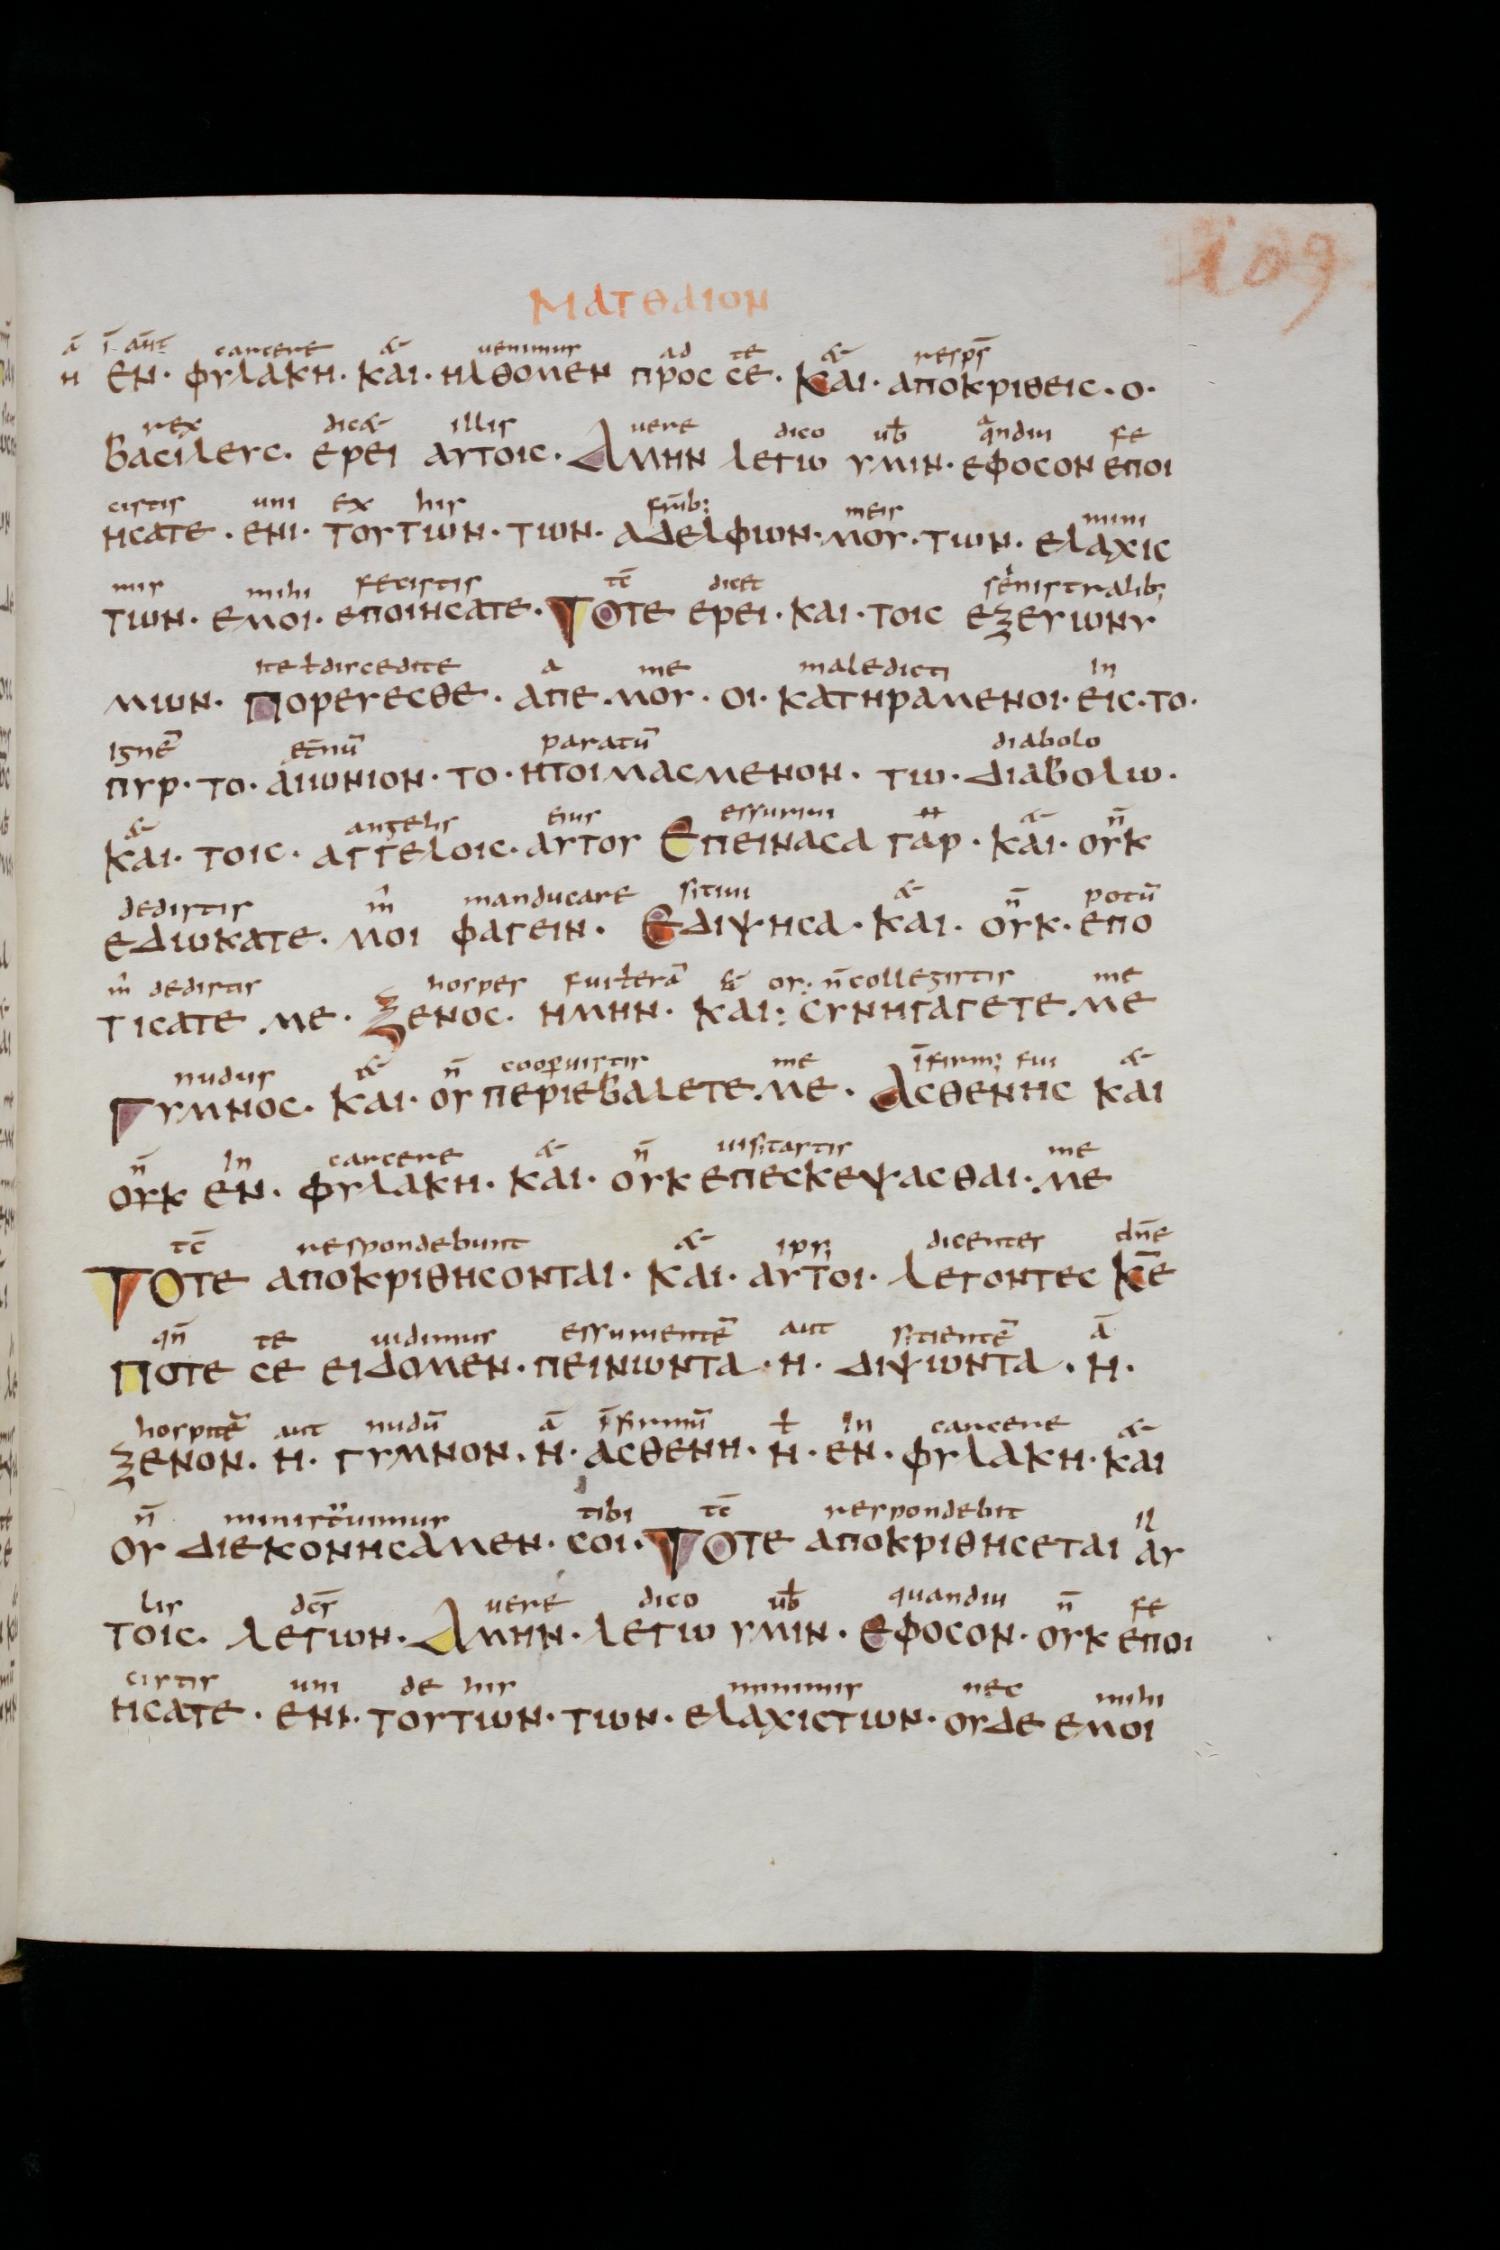 109
ΜΑΤΘΑΙΟΝ
ā ī aūt carcere & uenimus ad te & resps̄
Η ΕΝ· ΦΥΛΑΚΗ· ΚΑΙ· ΗΛΘΟΜΕΝ ΠΡΟС СΕ· ΚΑΙ· ΑΠΟΚΡΙΘΕΙС· Ο·
rex dic& illis uere dico ub̄ qandiu fe
ΒΑСΙΛΕΥС· ΕΡΕΙ ΑΥΤΟΙС· ΑΜΗΝ ΛΕΓΩ ΥΜΙΝ· ΕΦΟСΟΝ ΕΠΟΙ
cistis uni ex his fr̄ib; meis mini
ΗСΑΤΕ· ΕΝΙ· ΤΟΥΤΩΝ· ΤΩΝ· ΑΔΕΛΦΩΝ· ΜΟΥ· ΤΩΝ· ΕΛΑΧΙС
mis mihi fecistis tc̄ dicet senistralib;
ΤΩΝ· ΕΜΟΙ· ΕΠΟΙΗСΑΤΕ· ΤΟΤΕ ΕΡΕΙ· ΚΑΙ· ΤΟΙС ΕΞΕΥΩΝΥ
ite ł discedite a me maledicti in
ΜΩΝ· ΠΟΡΕΥΕСΘΕ· ΑΠΕ·ΜΟΥ· ΟΙ· ΚΑΤΗΡΑΜΕΝΟΙ· ΕΙС·ΤΟ·
ignē et̄nū paratū diabolo
ΠΥΡ· ΤΟ· ΑΙΩΝΙΟΝ· ΤΟ· ΗΤΟΙΜΑСΜΕΝΟΝ· ΤΩ· ΔΙΑΒΟΛΩ·
& angelis eius essuriui & n̄
ΚΑΙ· ΤΟΙС· ΑΓΓΕΛΟΙС· ΑΥΤΟΥ ΕΠΕΙΝΑСΑ ΓΑΡ· ΚΑΙ· ΟΥΚ
dedistis m̄ manducare sitiui & n̄ potū
ΕΔΩΚΑΤΕ· ΜΟΙ ΦΑΓΕΙΝ· ΕΔΙΨΗСΑ· ΚΑΙ· ΟΥΚ· ΕΠΟ
m̄ dedistis hospes fui ł erā & or; n̄ collegistis me
ΤΙСΑΤΕ ΜΕ· ΞΕΝΟС· ΗΜΗΝ· ΚΑΙ: СΥΝΗΓΑΓΕΤΕ ΜΕ
nudus & n̄ cooꝑuistis me īfirm; fui &
ΓΥΜΝΟС· ΚΑΙ· ΟΥ ΠΕΡΙΕΒΑΛΕΤΕ ΜΕ· ΑСΘΕΝΗС ΚΑΙ
n̄ in carcere & n̄ uisitastis me
ΟΥΚ ΕΝ· ΦΥΛΑΚΗ· ΚΑΙ· ΟΥΚ ΕΠΕСΚΕΨΑСΘΑΙ· ΜΕ
tc̄ respondebunt & ips; dicentes dn̄e
ΤΟΤΕ ΑΠΟΚΡΙΘΗСΟΝΤΑΙ· ΚΑΙ· ΑΥΤΟΙ· ΛΕΓΟΝΤΕС Κ̄Ε
qn̄ te uidimus essurientē aut sitientē ā
ΠΟΤΕ СΕ ΕΙΔΟΜΕΝ· ΠΕΙΝΩΝΤΑ· Η· ΔΙΨΩΝΤΑ· Η·
hospitē aut nudū ā īfirmū ł in carcere &
ΞΕΝΟΝ· Η· ΓΥΜΝΟΝ· Η· ΑСΘΕΝΗ· Η· ΕΝ· ΦΥΛΑΚΗ· ΚΑΙ
n̄ minist̄uimus tibi tc̄ respondebit il
ΟΥ ΔΙΕΚΟΝΗСΑΜΕΝ· СΟΙ· ΤΟΤΕ ΑΠΟΚΡΙΘΗСΕΤΑΙ ΑΥ
lis dc̄s uere dico ub̄ quandiu n̄ fe
ΤΟΙС· ΛΕΓΩΝ· ΑΜΗΝ· ΛΕΓΩ ΥΜΙΝ· ΕΦΟСΟΝ· ΟΥΚ ΕΠΟΙ
cistis uni de his minimis nec mihi
ΗСΑΤΕ· ΕΝΙ· ΤΟΥΤΩΝ· ΤΩΝ· ΕΛΑΧΙСΤΩΝ· ΟΥΔΕ ΕΜΟΙ